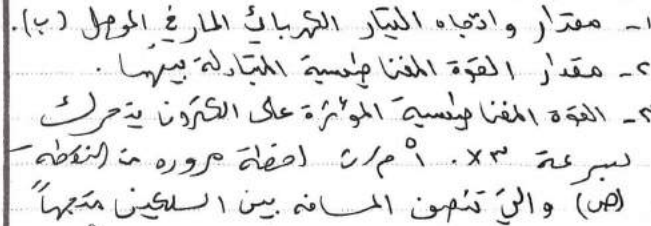 ١- مقدار واتجاه التيار الكهربائي المار في الموصل (ب).
٢- مقدار القوة المغناطيسية المتبادلة بينهما.
٣- القوة المغناطيسية المؤثرة على الكترون يتحرك
بسرعة ٣×١٠^٥ م/ث لحظة مروره من النقطة
(ص) والتي تنصف المسافه بين السلكين متجهاً